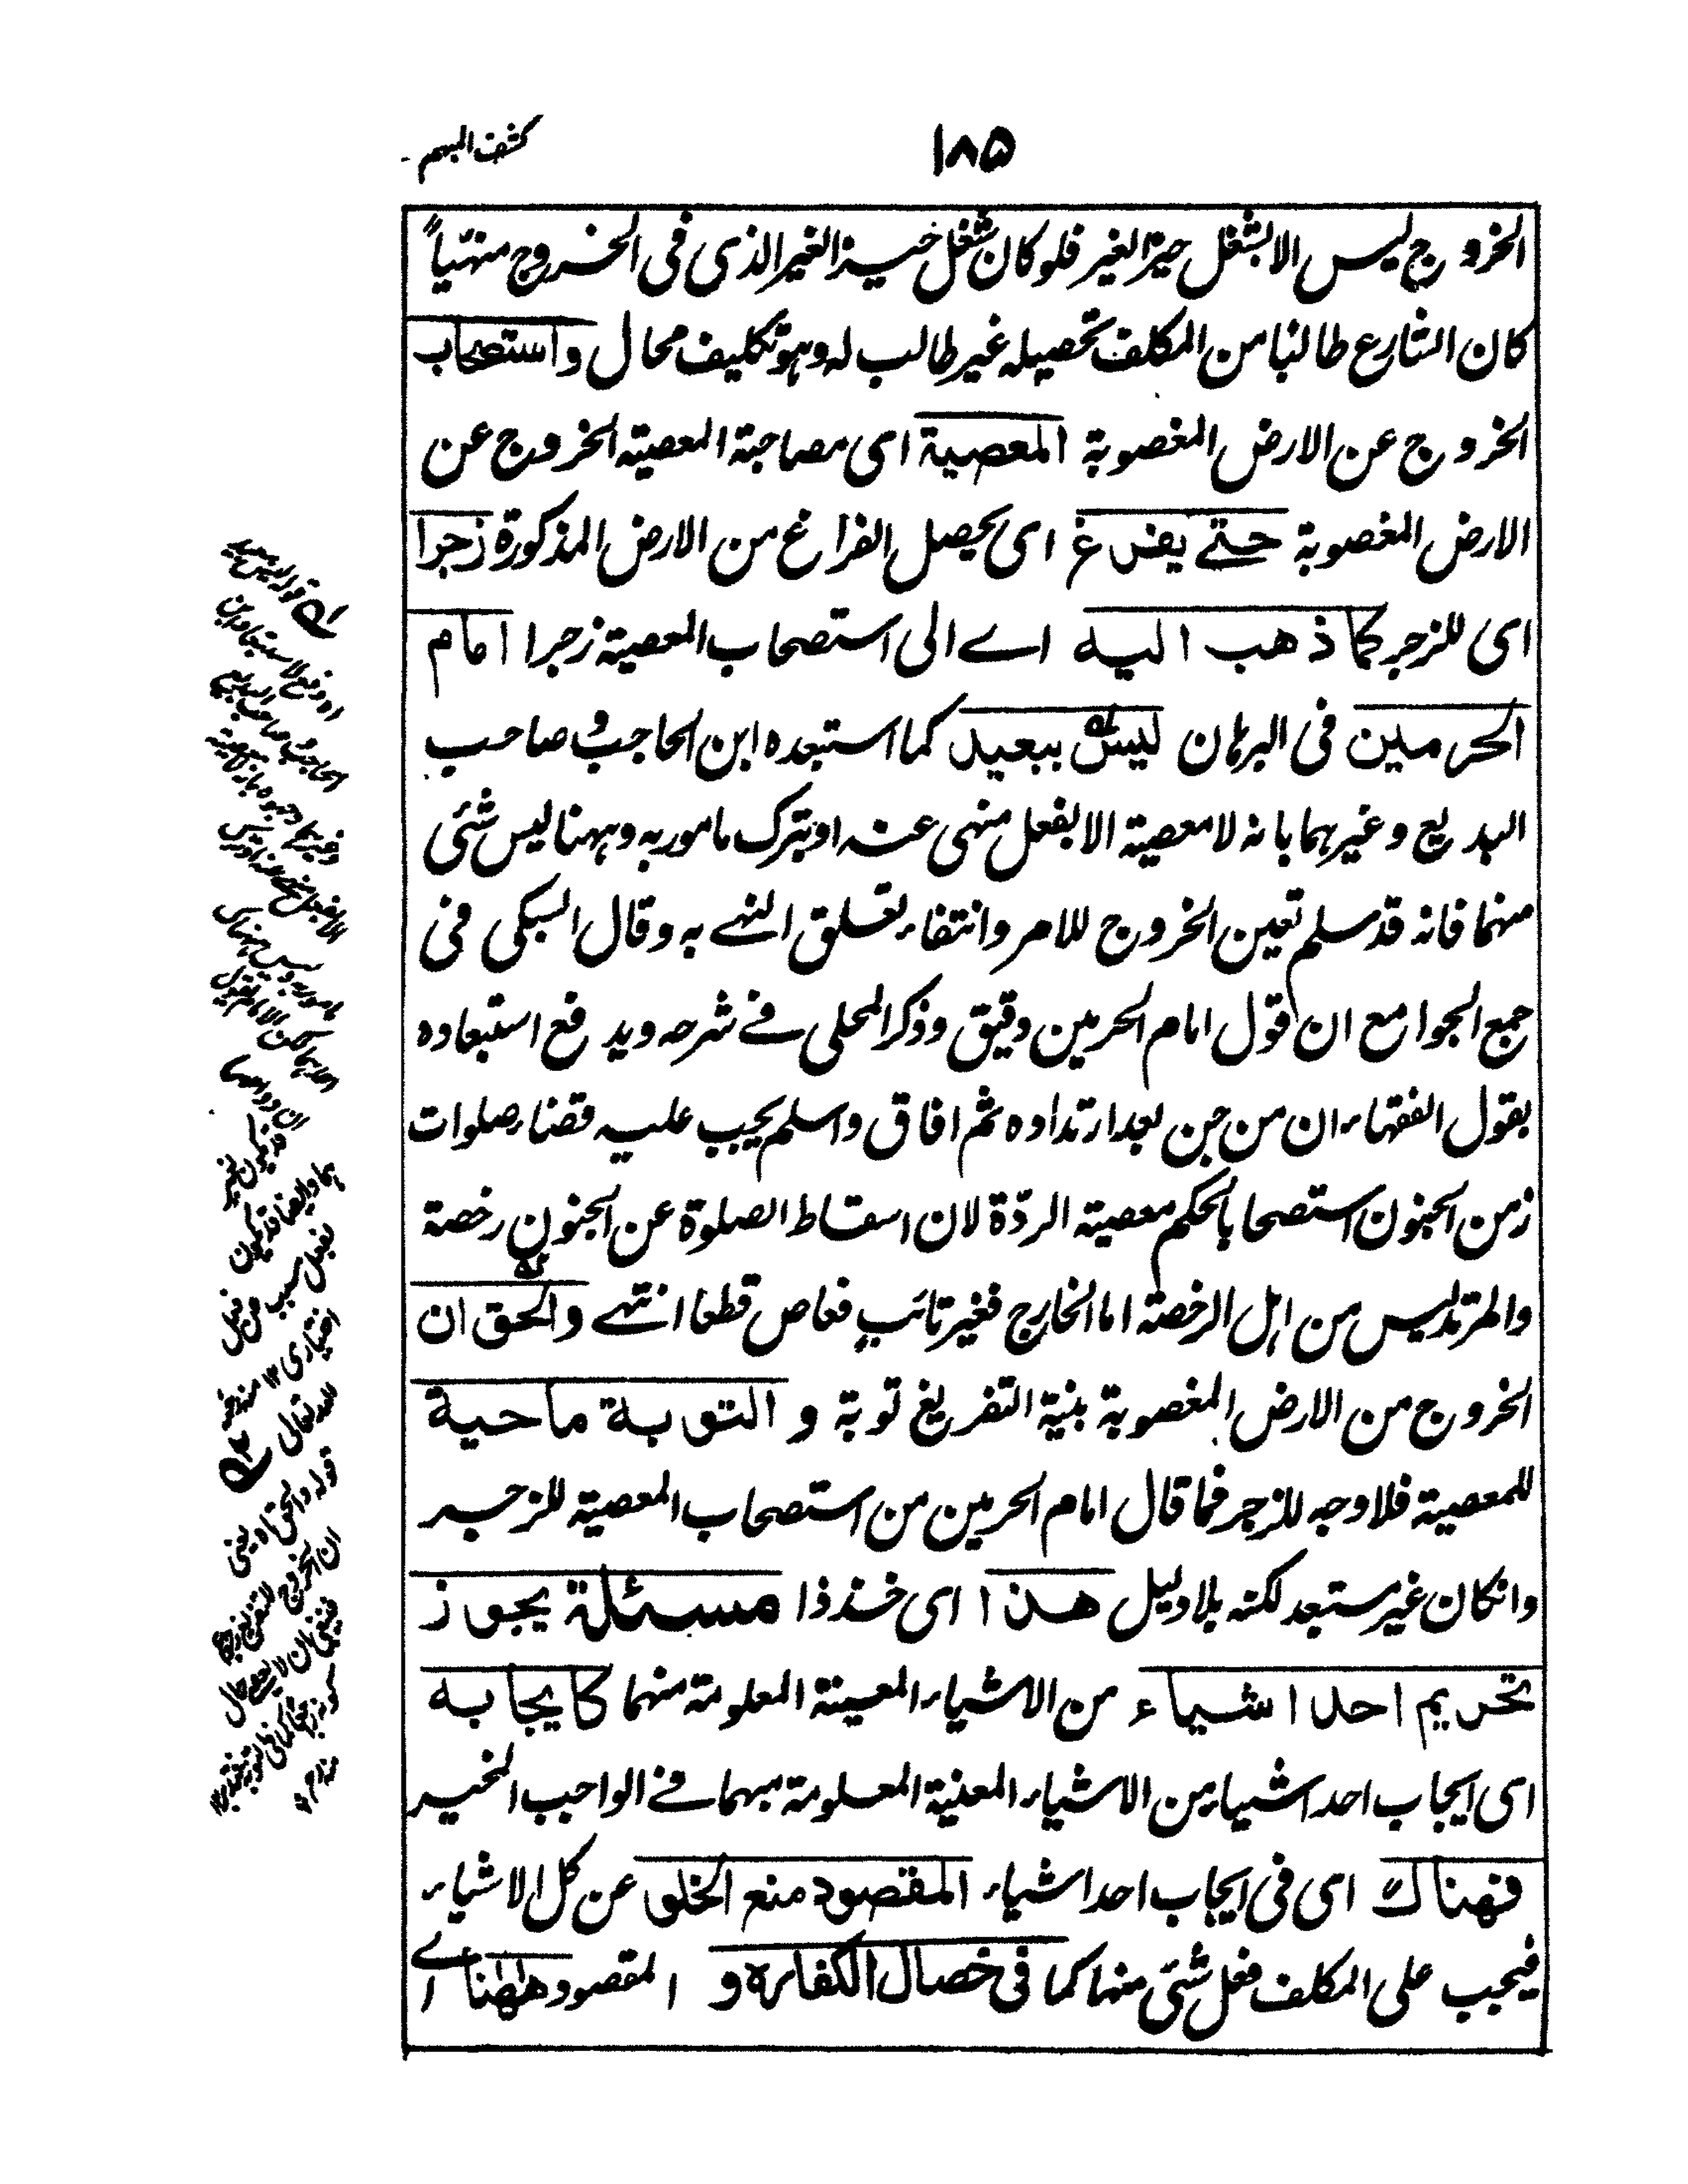 ١٨٥
كشف المبهم -
الخروج ليس الا بشغل حيز الغير فلو كان شغل حيز الغير الذى فى الخروج منهياً
كان الشارع طالبا من المكلف تحصيله غير طالب له وهو تكليف محال واستصحاب
الخروج عن الارض المغصوبة المعصية اى مصاحبة المعصية الخروج عن
الارض المغصوبة حتے يفرغ اى يحصل الفراغ من الارض المذكورة زجرا
اى للزجر كما ذهب اليه اے الى استصحاب المعصية زجرا امام
الحرمين فى البرهان ليس ببعيد كما استبعده ابن الحاجب و صاحب
البديع وغيرهما بانه لا معصية الا بفعل منهى عنه او بترك مامور به وههنا ليس شئى
منهما فانه قد سلم تعين الخروج للامر وانتفاء تعلق النهے به وقال السبكى فى
جمع الجوامع ان قول امام الحرمين دقيق وذكر المحلى فے شرحه ويدفع استبعاده
بقول الفقهاء ان من جن بعد ارتداده ثم افاق واسلم يجب عليه قضاء صلوات
زمن الجنون استصحابا لحكم معصية الردّة لان اسقاط الصلوة عن الجنون رخصة
والمرتد ليس من اهل الرخصة اما الخارج فغير تائب فعاص قطعا انتهے والحق ان
الخروج من الارض المغصوبة بنية التفريغ توبة و التوبة ماحية
للمعصية فلا وجه للزجر فما قال امام الحرمين من استصحاب المعصية للزجر
وانكان غير مستبعد لكنه بلا دليل هذا اى خذ ذا مسئلة يجوز
تحريم احد اشياء من الاشياء المعينة المعلومة منهما كايجابه
اى ايجاب احد اشياء من الاشياء المعنية المعلومة مبهما فے الواجب المخير
فهناك اى فى ايجاب احد اشياء المقصود منع الخلو عن كل الاشياء
فيجب على المكلف فعل شئى منها كما فى خصال الكفارة و المقصود ههنا اے
اختيارى ١٢ منه
قوله والحق
ان الخروج